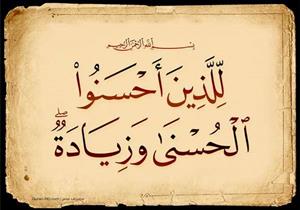 بِسْمِ اللَّهِ الرَّحْمَٰنِ الرَّحِيمِ
لِّلَّذِينَ أَحْسَنُوا۟
ٱلْحُسْنَىٰ وَزِيَادَةٌ ۖ